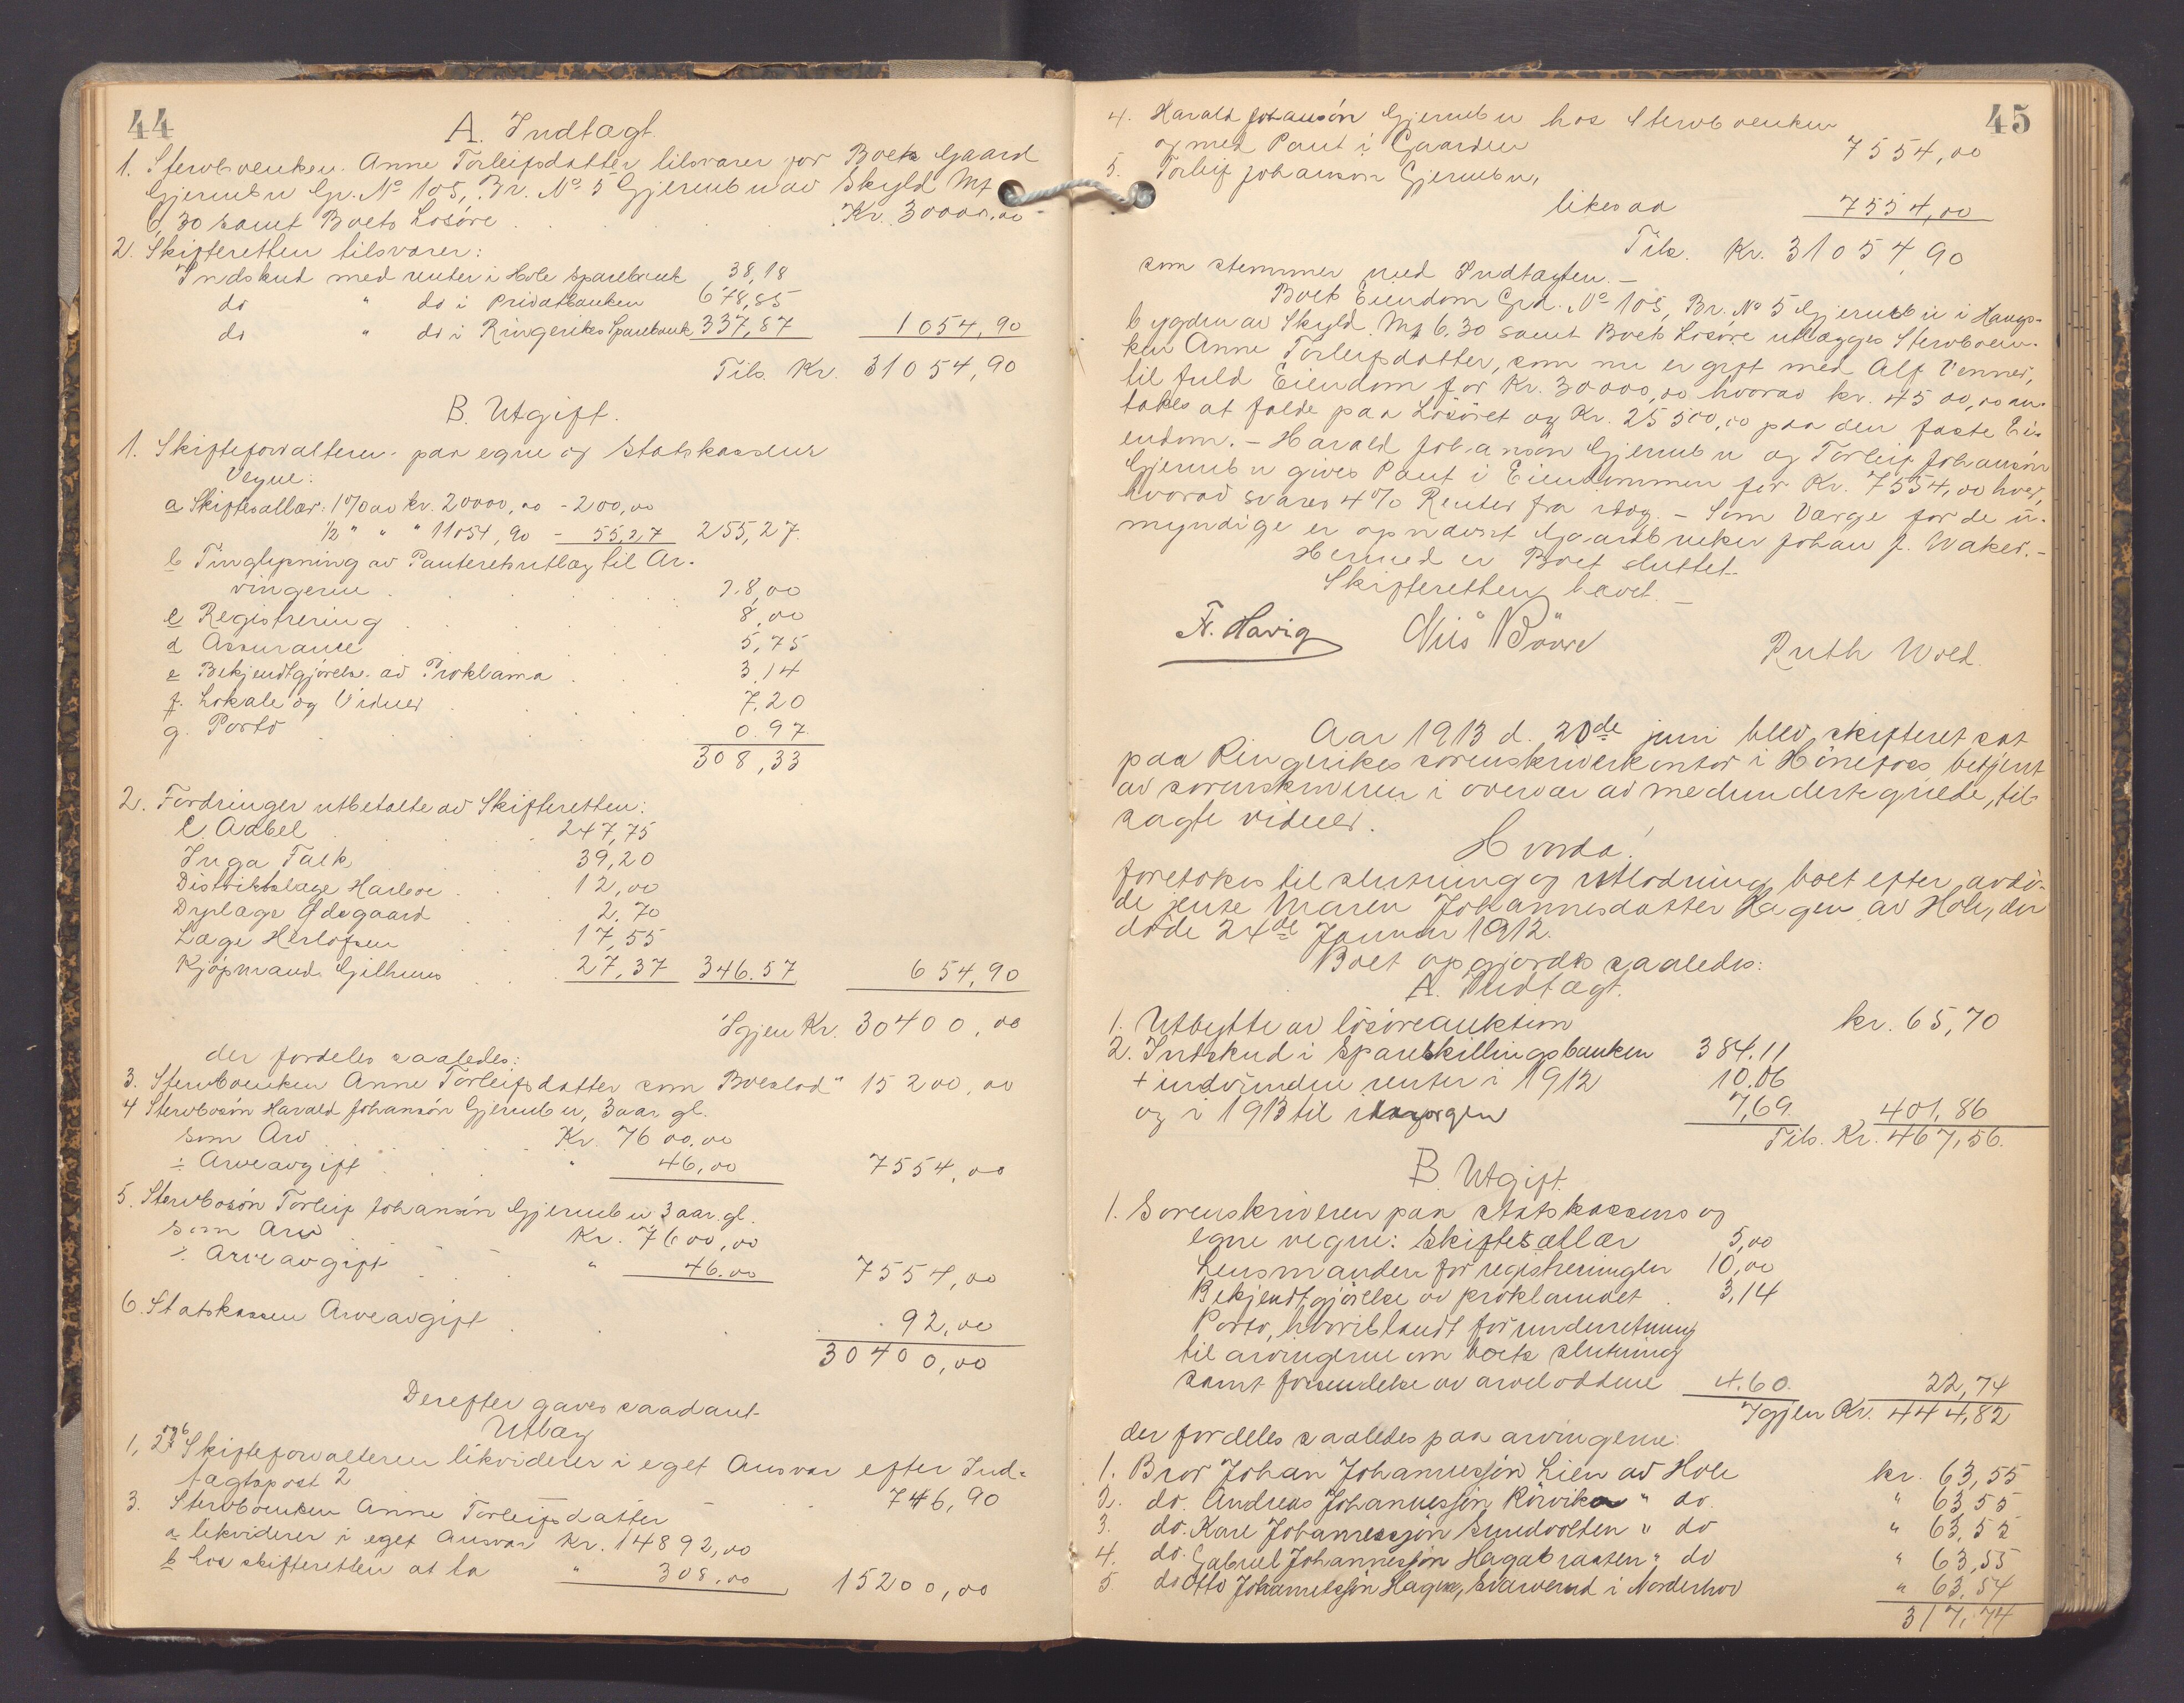 44
A. Indtægt.
1. Stervboenken Anne Torleifsdatter tilsvarer for Boets Gaard
Gjermbu Gr. No 105, Br. No 5 Gjermbu av Skyld Mf
6,30 samt Boets Løsøre . . . Kr. 30000,00
2. Skifteretten tilsvarer:
Indskud med renter i Hole Sparebank 38,18
do " do i Privatbanken 678,85
do " do i Ringerikes Sparebank 337,87 1054,90
Tils. Kr. 31054,90
B. Utgift.
1. Skifteforvalteren paa egne og Statskassens
Vegne:
a Skiftesallær: 1% av kr. 20000,00 - 200,00
1/2 " " " 11054,90 - 55,27 255,27
b Tinglysning av Panteretsutlæg til Ar-
vingerne . . . 28,00
c Registrering . . . 8,00
d Assurance 5,75
e Bekjendtgjørelse av Proklama . . 3,14
f. Lokale og Vidner . . . 7,20
g. Porto . . . 0.97
308,33
2. Fordringer utbetalte av Skifteretten:
C. Aabel . . 247,75
Inga Falk . . 39,20
Distriktslæge Harboe . . 12,00
Dyrlæge Ødegaard . . 2,70
Læge Herlofsen . . 17,55
Kjøpmand Gilhuus . . 27,37 346.57 654,90
Igjen Kr. 30400,00
der fordeles saaledes:
3. Stervboenken Anne Torleifsdatter som Boeslod " 15200,00
4 Stervbosøn Harald Johansøn Gjermbu, 3 aar gl.
som Arv . . Kr. 7600,00
÷ Arveavgift . . " 46,00 7554,00
5. Stervbosøn Torleif Johansøn Gjermbu 3 aar. gl.
som Arv . . Kr. 7600,00
÷ Arveavgift . . " 46.00 7554,00
6. Statskassen Arveavgift . . . 92,00
30400,00
Derefter gaves saadant
Utlæg
1, 2 og 6 Skifteforvalteren likviderer i eget Ansvar efter Ind-
tægtspost 2 . 746,90
3. Stervboenken Anne Torleifsdatter
a likviderer i eget Ansvar Kr. 14892,00
b hos skifteretten at ta " 308,00 15200,00
45
4. Harald Johansøn Gjermbu hos Stervboenken
og med Pant i Gaarden 7554,00
5. Torleif Johansøn Gjermbu,
likesaa 7554,00
Tils. Kr. 31054,90
som stemmer med Indtægten. -
Boets Eiendom Grd. No 105, Br. No 5 Gjermbu i Haugs-
bygden av Skyld Mf 6,30 samt Boets Løsøre utlægges Stervboen-
ken Anne Torleifsdatter, som nu er gift med Alf Venner,
til fuld Eiendom for Kr. 30000,00 hvorav kr. 4500,00 an-
takes at falde paa Løsøret og Kr. 25500,00 paa den faste Ei-
endom. - Harald Johansøn Gjermbu og Torleif Johansøn
Gjermbu gives Pant i Eiendommen for Kr. 7554,00 hver,
hvorav svares 4% Renter fra idag. - Som Værge for de u-
myndige er opnævnt Gaardbruker Johan J. Waker. -
Hermed er Boet sluttet.
Skifteretten hævet. -
Fr. Havig Nils Ruth Wold.
Aar 1913 d. 20de juni blev skifteret sat
paa Ringerikes sorenskriverkontor i Hönefoss betjent
av sorenskriveren i overvær av medundertegnede, til-
sagte vidner.
Hvorda!
foretokes til slutning og utlodning boet efter avdö-
de jente Maren Johannesdatter Hagen av Hole, der
døde 24de Januar 1912.
Boet opgjordes saaledes:
A. Indtægt.
1. Utbytte av løsøreauktion kr. 65,70
2. Indskud i Spareskillingsbanken 384.11
+ indvundne renter i 1912 10.06
og i 1913 til idag 7,69 401,86
Tils. Kr. 467,56.
B. Utgift.
1. Sorenskriveren paa statskassens og
egne vegne: Skiftesallær 5,00
Lensmanden for registreringen 10,00
Bekjendtgjörelse av proklamaet . 3,14
Porto, hvoriblandt for underretning
til arvingerne om boets slutning
samt forsendelse av arveloddene 4.60. 22,74
Igjen Kr. 444,82
der fordeles saaledes paa arvingerne:
1. Bror Johan Johannessön Lien av Hole kr. 63,55
2. do. Andreas Johannessön Rörvika " do. " 63,55
3. do. Kare Johannessön Sundvolden " do " 63,55
4. do. Gabriel Johannessön Hagabraaten " do " 63,55
5. do Otto Johannessön Hagen, Svarverud i Norderhov " 63,54
317,74